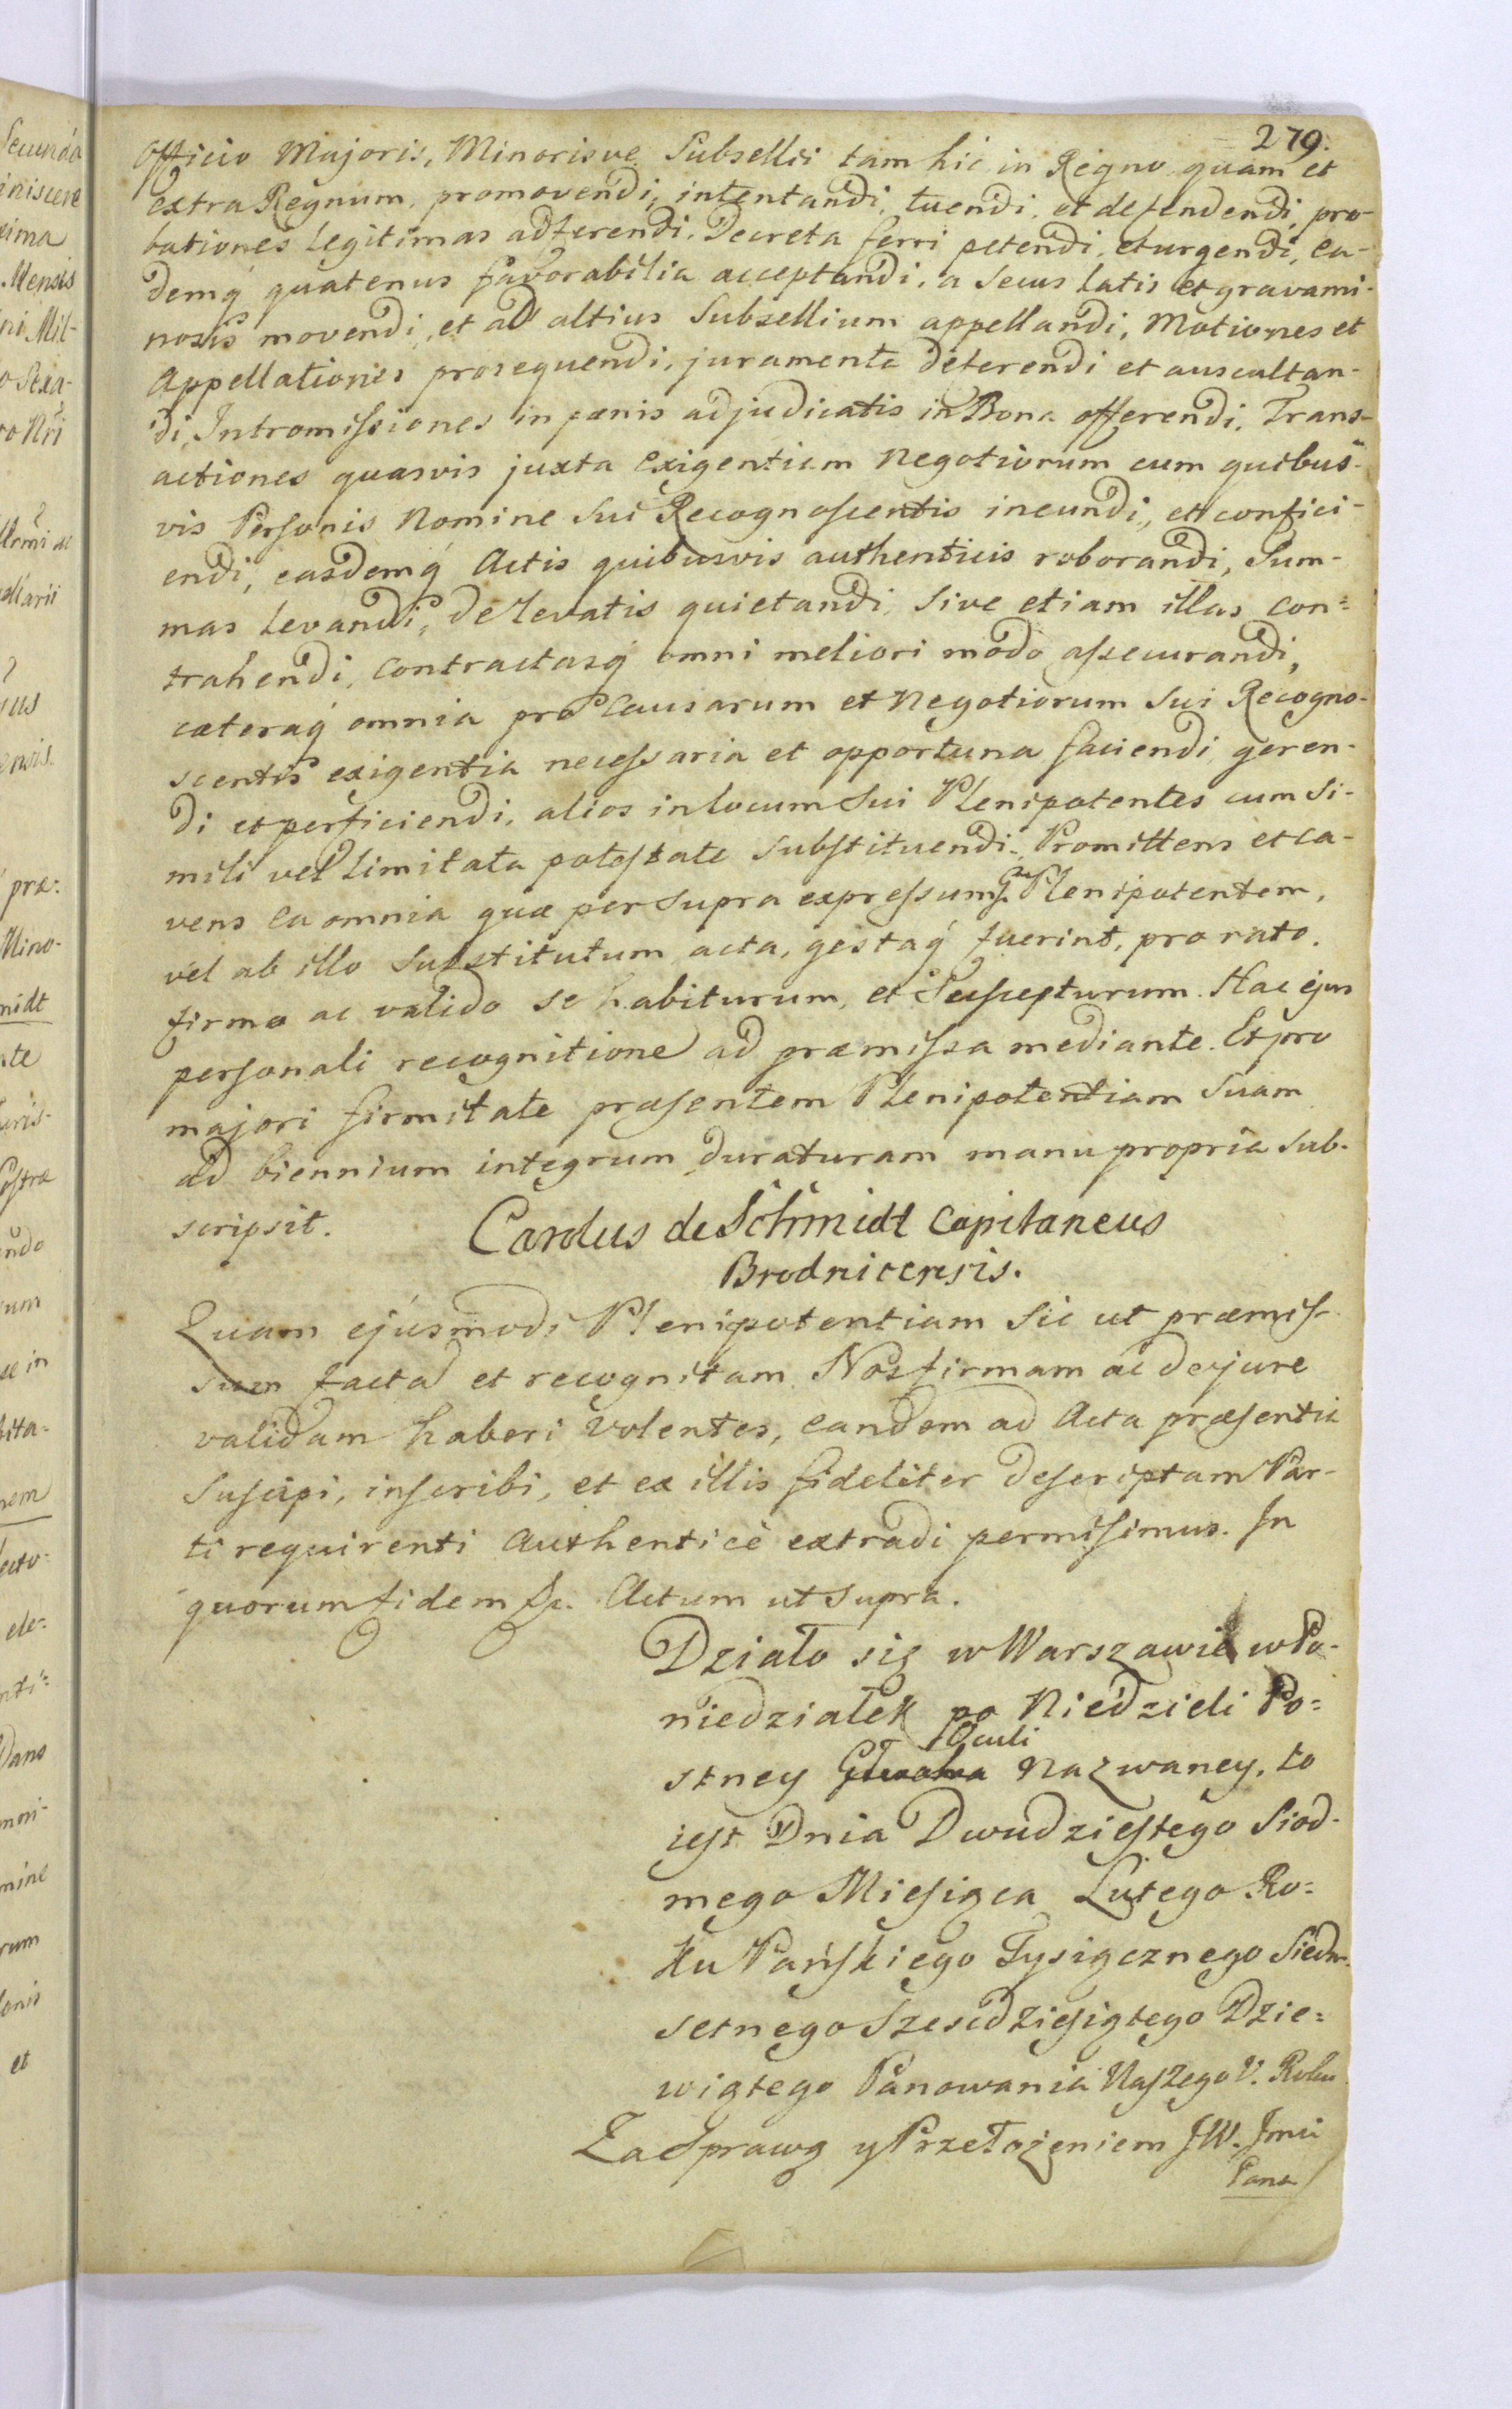 279.
Officio Majoris, Minorisve Subsellii tam hic in Regno quam et
extra Regnum, promovendi, intentandi, tuendi, et defendendi, pro-
bationes legitimas adferendi, Decreta ferri petendi, et urgendi, ea-
demq́ quatenus favorabilia acceptandi, a secus latis et gravami-
nosis movendi, et ad altius Subsellium appellandi, Motiones et
Appellationes prosequendi, juramenta deferendi et auscultan-
di, Intromissiones in pænis adjudicatis in Bona offerendi, Trans-
actiones quasvis juxta exigentiam Negotiorum cum quibus-
vis Personis Nomine Sui Recognoscentis ineundi, et confici-
endi, easdemq́ Actis quibusvis authenticis roborandi, Sum-
mas levandi, de levatis quietandi, Sive etiam illas con=
trahendi, contractasq́ omni meliori modo assecurandi,
cæteraq́ omnia pro Causarum et Negotiorum Sui Recogno-
scentis exigentia necessaria et opportuna faciendi, geren-
di et perficiendi, alios in locum Sui Plenipotentes cum Si-
mili vel limitata potestate Substituendi. Promittens et ca-
vens ea omnia quæ per supra expressum Plenipotentem,
vel ab illo Substitutum acta, gestaq́ fuerint, pro rato,
firmo ac valido se habiturum, et Suscepturum. Hac ejus
personali recognitione ad præmissa mediante. Et pro
majori firmitate præsentem Plenipotentiam Suam
ad biennium integrum duraturam manu propria Sub-
scripsit. Carolus de Schmidt Capitaneus
Brodnicensis.
Quam ejusmodi Plenipotentiam Sic ut præmis-
sum facta et recognitam Nos firmam ac de jure
validam haberi volentes, eandem ad Acta præsentia
Suscipi, inscribi, et ex illis fideliter descriptam Par-
ti requirenti Authenticè extradi permisimus. In
quorum fidem &c. Actum ut supra.
Działo się w Warszawie w Po-
niedziałek po Niedzieli Po=
Oculi
stney Nazwaney, to
iest Dnia Dwudziestego Siod-
mego Miesiąca Lutego Ro=
ku Pańskiego Tysiącznego Siedm-
setnego Szescdziesiątego Dzie=
wiątego Panowania Naszego V. Roku
Za Sprawą y Przełożeniem JW. Jmci
Pana